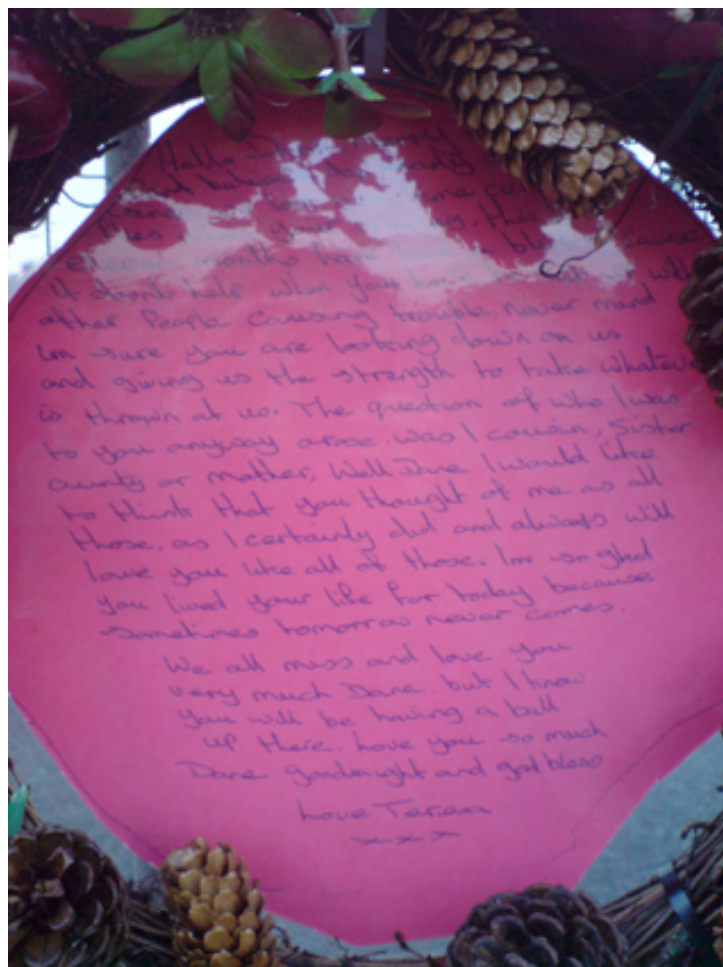 Hello Dane Merry
time
this
eleven months have been a blur cause
it don't help when you have with
other People causing trouble, never mind
Im sure you are looking down on us
and giving us the strength to take whatever
is thrown at us. The question of who I was
to you anyway arose. was I cousin, Sister
aunty or mother, Well Dane I would like
to think that you thought of me as all
those, as I certainly did and always will
love you like all of those. Im so glad
you lived your life for today because
sometimes tomorrow never comes.
We all miss and love you
very much Dane. but I know
you will be having a ball
up there. Love you so much
Dane goodnight and god bless
Love Teresa
x x x